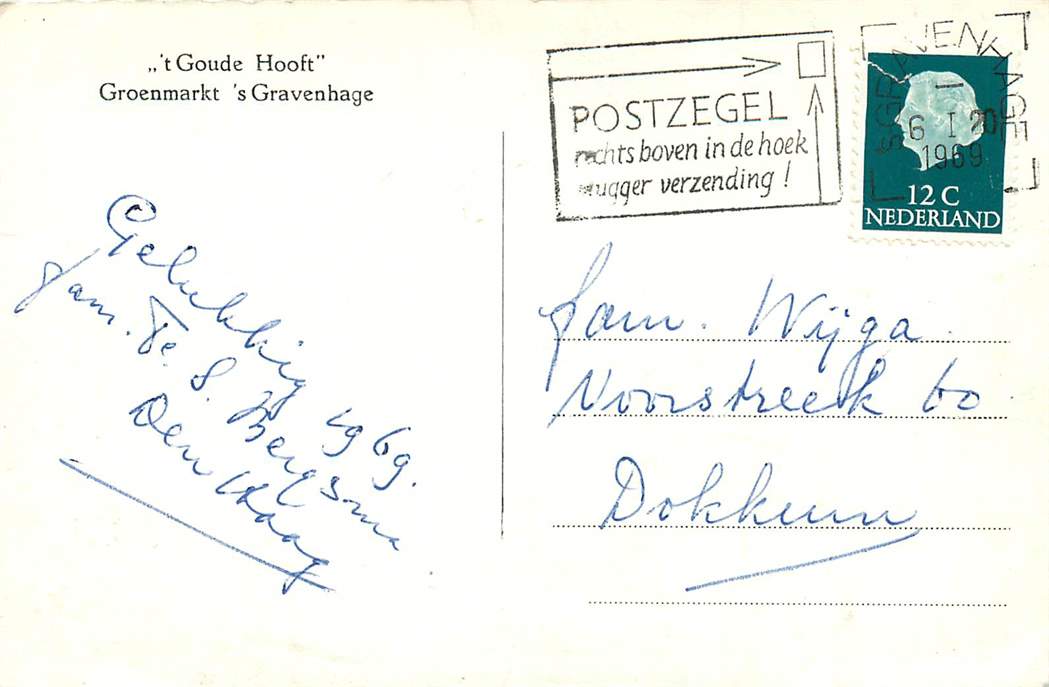 „'t Goude Hooft"
Groenmarkt 's Gravenhage
POSTZEGEL
rechts boven in de hoek
vlugger verzending!
'SGRAVENHAGE
6 I 20
1969
12 C
NEDERLAND
Gelukkig 1969.
fam. Te. S. Bergsma
Den Haag
fam. Wijga.
Voorstreek 60
Dokkum